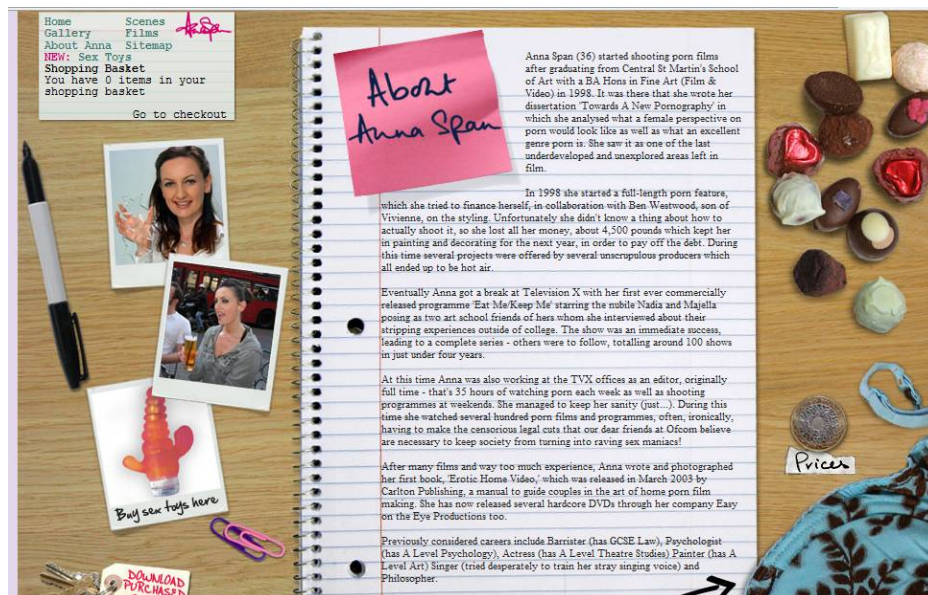 Home Scenes
Gallery Films
About Anna Sitemap
NEW: Sex Toys
Shopping Basket
You have 0 items in your
shopping basket
Go to checkout
Anna Span
About
Anna Span
Anna Span (36) started shooting porn films
after graduating from Central St Martin's School
of Art with a BA Hons in Fine Art (Film &
Video) in 1998. It was there that she wrote her
dissertation 'Towards A New Pornography' in
which she analysed what a female perspective on
porn would look like as well as what an excellent
genre porn is. She saw it as one of the last
underdeveloped and unexplored areas left in
film.
In 1998 she started a full-length porn feature,
which she tried to finance herself, in collaboration with Ben Westwood, son of
Vivienne, on the styling. Unfortunately she didn't know a thing about how to
actually shoot it, so she lost all her money, about 4,500 pounds which kept her
in painting and decorating for the next year, in order to pay off the debt. During
this time several projects were offered by several unscrupulous producers which
all ended up to be hot air.
Eventually Anna got a break at Television X with her first ever commercially
released programme 'Eat Me/Keep Me' starring the nubile Nadia and Majella
posing as two art school friends of hers whom she interviewed about their
stripping experiences outside of college. The show was an immediate success,
leading to a complete series - others were to follow, totalling around 100 shows
in just under four years.
At this time Anna was also working at the TVX offices as an editor, originally
full time - that's 35 hours of watching porn each week as well as shooting
programmes at weekends. She managed to keep her sanity (just...). During this
time she watched several hundred porn films and programmes, often, ironically,
having to make the censorious legal cuts that our dear friends at Ofcom believe
are necessary to keep society from turning into raving sex maniacs!
After many films and way too much experience, Anna wrote and photographed
her first book, 'Erotic Home Video,' which was released in March 2003 by
Carlton Publishing, a manual to guide couples in the art of home porn film
making. She has now released several hardcore DVDs through her company Easy
on the Eye Productions too.
Previously considered careers include Barrister (has GCSE Law), Psychologist
(has A Level Psychology), Actress (has A Level Theatre Studies) Painter (has A
Level Art) Singer (tried desperately to train her stray singing voice) and
Philosopher.
Buy sex toys here
DOWNLOAD
PURCHASED
Prices